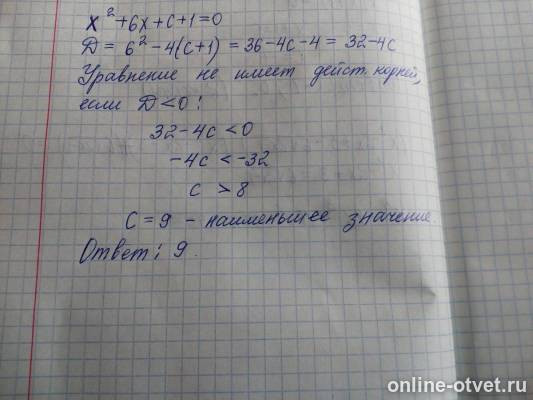 x² + 6x + c + 1 = 0
D = 6² - 4(c+1) = 36 - 4c - 4 = 32 - 4c
Уравнение не имеет дейст. корней,
если D < 0:
32 - 4c < 0
-4c < -32
c > 8
C = 9 - наименьшее значение.
Ответ: 9.
online-otvet.ru